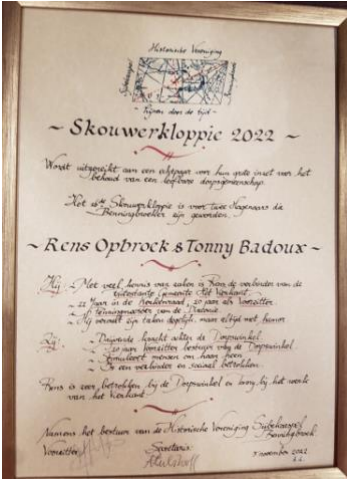 Historische Vereniging
Skouwerkloppie 2022
Wordt uitgereikt aan een echtpaar voor hun grote inzet voor het
behoud van een leefbare dorpsgemeenschap.
Het Skouwerkloppie is voor twee Hagenaars die
Benningbroeker zijn geworden.
Rens Opbroek & Tonny Badoux
Hij - Met veel kennis van zaken is Rens de verbinder van de
Gemeente Het Vierkant
- 22 jaar in de 20 jaar als Voorzitter
- Penningmeester van de
- Hij vervult zijn taken degelijk, maar altijd met humor
Zij - kracht achter de Dorpswinkel
- 20 jaar voorzitter bestuur van de Dorpswinkel
- Stimuleert mensen om haar heen
- Is een verbinder en sociaal betrokken
Rens is zeer betrokken bij de Dorpswinkel en Tonny bij het werk
van het Vierkant.
Namens het bestuur van de Historische Vereniging Sijbekarspel
Benningbroek
Voorzitter Secretaris 5 november 2022